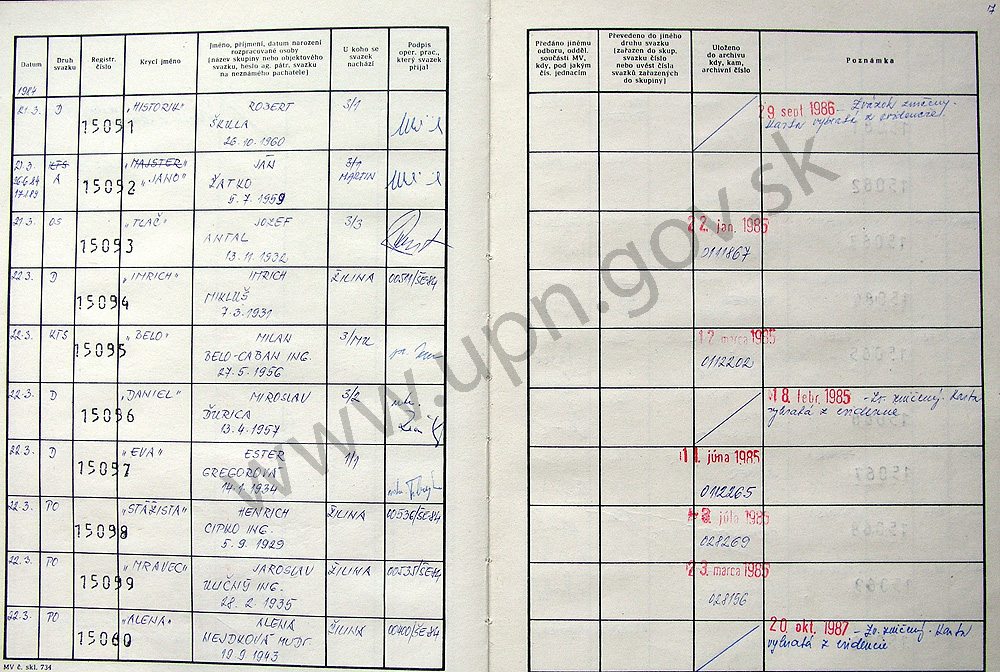 7
Datum
Druh svazku
Registr. číslo
Krycí jméno
Jméno, příjmení, datum narození rozpracované osoby
(název skupiny nebo objektového svazku, heslo ag. pátr. svazku na neznámého pachatele)
U koho se svazek nachází
Podpis oper. prac., který svazek přijal
Předáno jinému odboru, odděl. součásti MV, kdy, pod jakým čís. jednacím
Převedeno do jiného druhu svazku (zařazen do skup. svazku číslo nebo uvést čísla svazků zařazených do skupiny)
Uloženo do archivu kdy, kam, archivní číslo
Poznámka
1984
21.3. D 15051 "HISTORIK" ROBERT 3/1
ŠKULLA
26.10.1960
29 sept 1986 - Zväzok zničený.
Karta vybratá z evidencie.
21.3. KTS 15052 "MAJSTER" JÁN 3/1
26.6.84 A "JANO" ŽATKO MARTIN
17.1.89 5.7.1959
21.3. OS 15053 "TLAČ" JOZEF 3/3
ANTAL
13.11.1932
22. jan. 1985
0111867
22.3. D 15054 "IMRICH" IMRICH ŽILINA 00511/ŠE-84
MIKLUŠ
7.3.1931
22.3. KTS 15055 "BELO" MILAN
BELO-CABAN ING.
27.5.1956
12. marca 1985
0112202
22.3. D 15056 "DANIEL" MIROSLAV 3/2
ĎURICA
13.4.1957
18. febr. 1985 - Zv. zničený. Karta
vybratá z evidencie
22.3. D 15057 "EVA" ESTER 1/1
GREGOROVÁ
14.1.1934
11. júna 1985
0112265
22.3. PO 15058 "STÁŽISTA" HENRICH ŽILINA 00536/ŠE-84
CIPKO ING.
5.9.1929
3. júla 1985
028269
22.3. PO 15059 "MRAVEC" JAROSLAV ŽILINA 00535/ŠE-84
ULIČNÝ ING.
28.2.1935
23. marca 1985
028156
22.3. PO 15060 "ALENA" ALENA ŽILINA 00400/ŠE-84
NEJDKOVÁ MUDr.
19.9.1943
20. okt. 1987 - Zv. zničený. Karta
vybratá z evidencie
MV č. skl. 734
www.upn.gov.sk